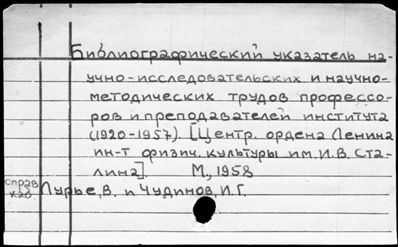 Библиографический указатель на-
учно-исследовательских и научно-
методических трудов профессо-
ров и преподавателей института
(1920-1957). [Центр. ордена Ленина
ин-т физич. культуры им. И.В. Ста-
лина]. М., 1958
справ
каб
Лурье, В. и Чудинов, И.Г.